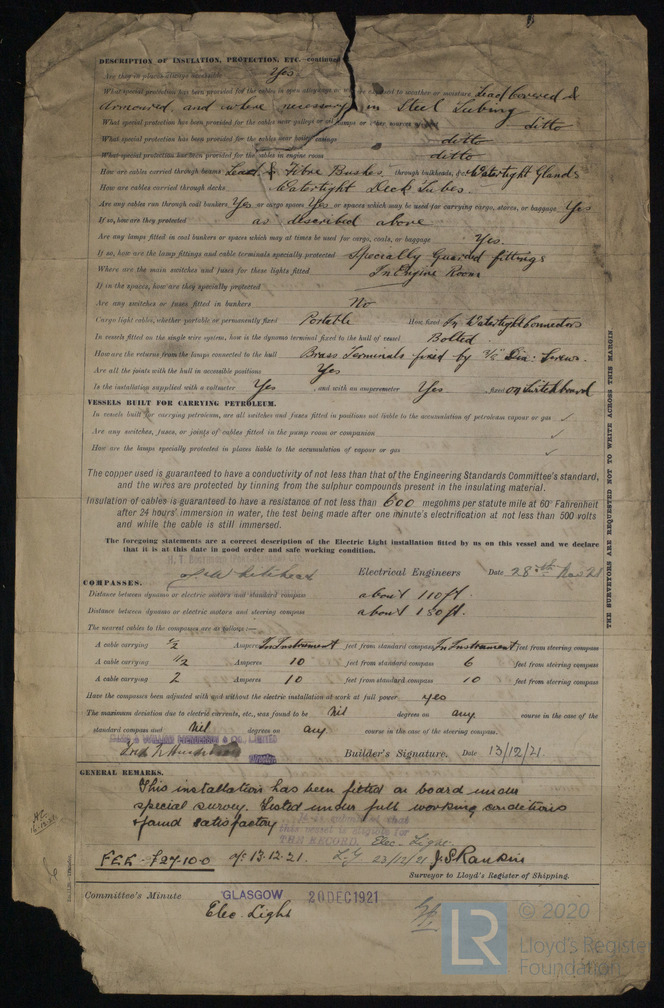 DESCRIPTION OF INSULATION, PROTECTION, ETC.—continued
Are they in places always accessible Yes.
What special protection has been provided for the cables in open alleyways or exposed to weather or moisture Lead Covered &
Armoured, and where necessary in Steel Tubing
What special protection has been provided for the cables near galleys or oil lamps or other sources ditto
What special protection has been provided for the cables near boiler casings ditto
What special protection has been provided for the cables in engine room ditto
How are cables carried through beams Lead & Fibre Bushes through bulkheads, &c. Watertight Glands
How are cables carried through decks Watertight Deck Tubes.
Are any cables run through coal bunkers Yes or cargo spaces Yes or spaces which may be used for carrying cargo, stores, or baggage Yes
If so, how are they protected as described above
Are any lamps fitted in coal bunkers or spaces which may at times be used for cargo, coals, or baggage Yes.
If so, how are the lamp fittings and cable terminals specially protected Specially Guarded fittings
Where are the main switches and fuses for these lights fitted In Engine Room
If in the spaces, how are they specially protected
Are any switches or fuses fitted in bunkers No
Cargo light cables, whether portable or permanently fixed Portable How fixed In Watertight Connectors
In vessels fitted on the single wire system, how is the dynamo terminal fixed to the hull of vessel Bolted
How are the returns from the lamps connected to the hull Brass Terminals fixed by Dia: Screws.
Are all the joints with the hull in accessible positions Yes
Is the installation supplied with a voltmeter Yes, and with an amperemeter Yes, fixed on Switchboard
VESSELS BUILT FOR CARRYING PETROLEUM.
In vessels built for carrying petroleum, are all switches and fuses fitted in positions not liable to the accumulation of petroleum vapour or gas ✓
Are any switches, fuses, or joints of cables fitted in the pump room or companion ✓
How are the lamps specially protected in places liable to the accumulation of vapour or gas ✓
The copper used is guaranteed to have a conductivity of not less than that of the Engineering Standards Committee's standard,
and the wires are protected by tinning from the sulphur compounds present in the insulating material.
Insulation of cables is guaranteed to have a resistance of not less than 600 megohms per statute mile at 60° Fahrenheit
after 24 hours' immersion in water, the test being made after one minute's electrification at not less than 500 volts
and while the cable is still immersed.
The foregoing statements are a correct description of the Electric Light installation fitted by us on this vessel and we declare
that it is at this date in good order and safe working condition.
Electrical Engineers Date 28th Nov 21
COMPASSES.
Distance between dynamo or electric motors and standard compass about 110 ft.
Distance between dynamo or electric motors and steering compass about 130 ft.
The nearest cables to the compasses are as follows:—
A cable carrying 1/2 Amperes In Instrument feet from standard compass In Instrument feet from steering compass
A cable carrying 1/2 Amperes 10 feet from standard compass 6 feet from steering compass
A cable carrying 2 Amperes 10 feet from standard compass 10 feet from steering compass
Have the compasses been adjusted with and without the electric installation at work at full power yes
The maximum deviation due to electric currents, etc., was found to be Nil degrees on any course in the case of the
standard compass and Nil degrees on any course in the case of the steering compass.
Builder's Signature. Date 13/12/21.
GENERAL REMARKS.
This installation has been fitted on board under
special survey. Tested under full working conditions
& found satisfactory
It is submitted that
this vessel is eligible for
THE RECORD. Elec. Light.
FEE £27-10-0 13.12.21. 23/12/21 J.S. Rankin
Surveyor to Lloyd's Register of Shipping.
Committee's Minute GLASGOW 20 DEC 1921
Elec. Light
THE SURVEYORS ARE REQUESTED NOT TO WRITE ACROSS THIS MARGIN
LR © 2020
Lloyd's Register
Foundation